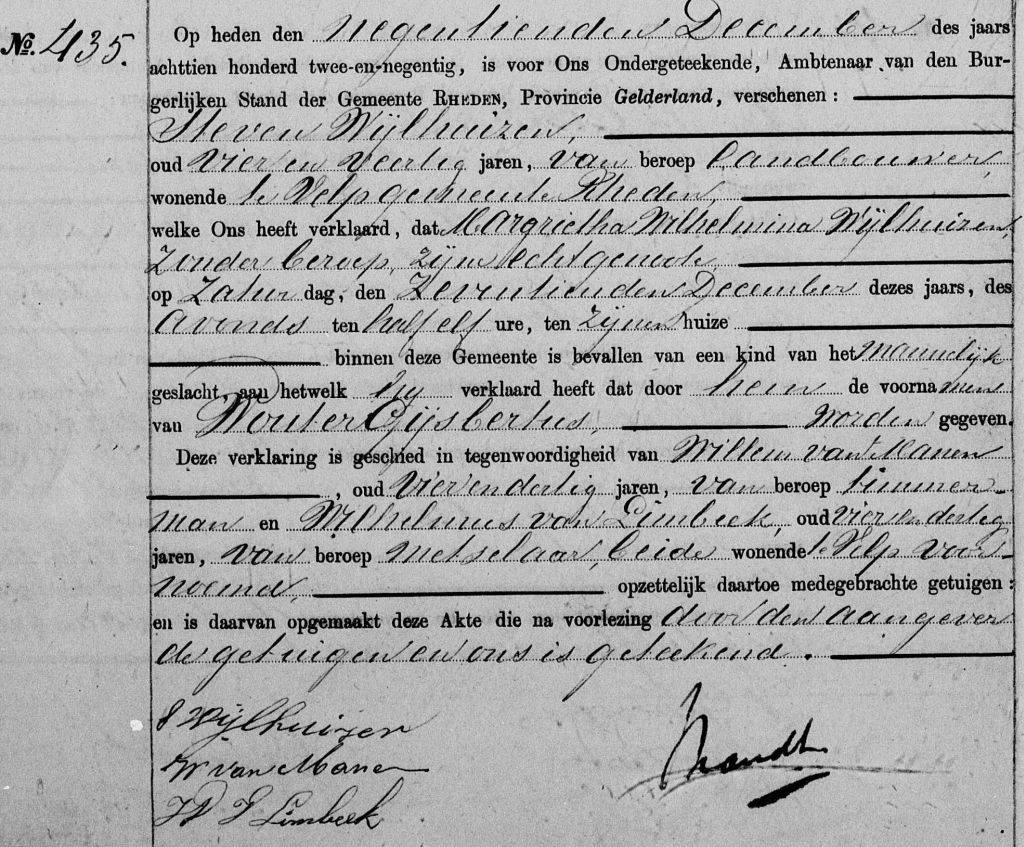 No. 435.
Op heden den negentienden December des jaars
achttien honderd twee-en-negentig, is voor Ons Ondergeteekende, Ambtenaar van den Bur-
gerlijken Stand der Gemeente RHEDEN, Provincie Gelderland, verschenen:
Steven Wijlhuizen,
oud vier en veertig jaren, van beroep landbouwer,
wonende te Velp gemeente Rheden,
welke Ons heeft verklaard, dat Margrietha Wilhelmina Wijlhuizen,
zonder beroep, zijne echtgenoote,
op Zaturdag, den Zeventienden December dezes jaars, des
avonds ten half elf ure, ten zijnen huize
binnen deze Gemeente is bevallen van een kind van het mannelijk
geslacht, aan hetwelk hij verklaard heeft dat door hem de voornamen
van Wouter Gijsbertus, worden gegeven.
Deze verklaring is geschied in tegenwoordigheid van Willem van Manen
, oud vierendertig jaren, van beroep timmer-
man en Wilhelmus van Limbeek, oud vierendertig
jaren, van beroep metselaar, beide wonende te Velp voor-
noemd, opzettelijk daartoe medegebrachte getuigen:
en is daarvan opgemaakt deze Akte die na voorlezing door den aangever
de getuigen en ons is geteekend.
S Wijlhuizen
W van Manen
Limbeek
Brandt